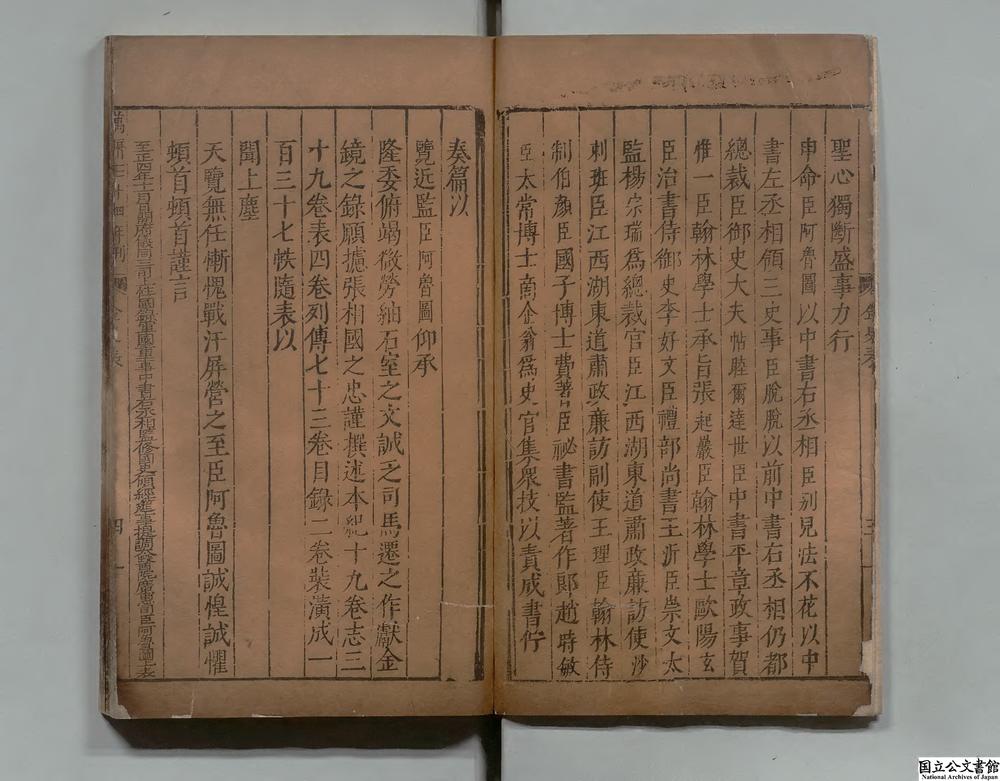 聖心獨斷盛事力行
申命臣阿魯圖以中書右丞相臣别兒怯不花以中
書左丞相領三史事臣脫脫以前中書右丞相仍都
總裁臣御史大夫帖睦爾達世臣中書平章政事賀
惟一臣翰林學士承旨張起巖臣翰林學士歐陽玄
臣治書侍御史李好文臣禮部尚書王沂臣崇文太
監楊宗瑞爲總裁官臣江西湖東道肅政廉訪使沙
剌班臣江西湖東道肅政廉訪副使王理臣翰林待
制伯顏臣國子博士費著臣祕書監著作郎趙時敏
臣太常博士商企翁爲史官集衆技以責成書佇
奏篇以
覽近監臣阿魯圖仰承
隆委俯竭微勞紬石室之文誠乏司馬遷之作獻金
鏡之錄願攄張相國之忠謹撰述本紀十九卷志三
十九卷表四卷列傳七十三卷目錄二卷裝潢成一
百三十七帙隨表以
聞上塵
天覽無任慚愧戰汗屏營之至臣阿魯圖誠惶誠懼
頓首頓首謹言
至正四年十一月日開府儀同三司上柱國錄軍國重事中書右丞相監修國史領經筵事提調太醫院廣惠司臣阿魯圖上表
四
国立公文書館
National Archives of Japan